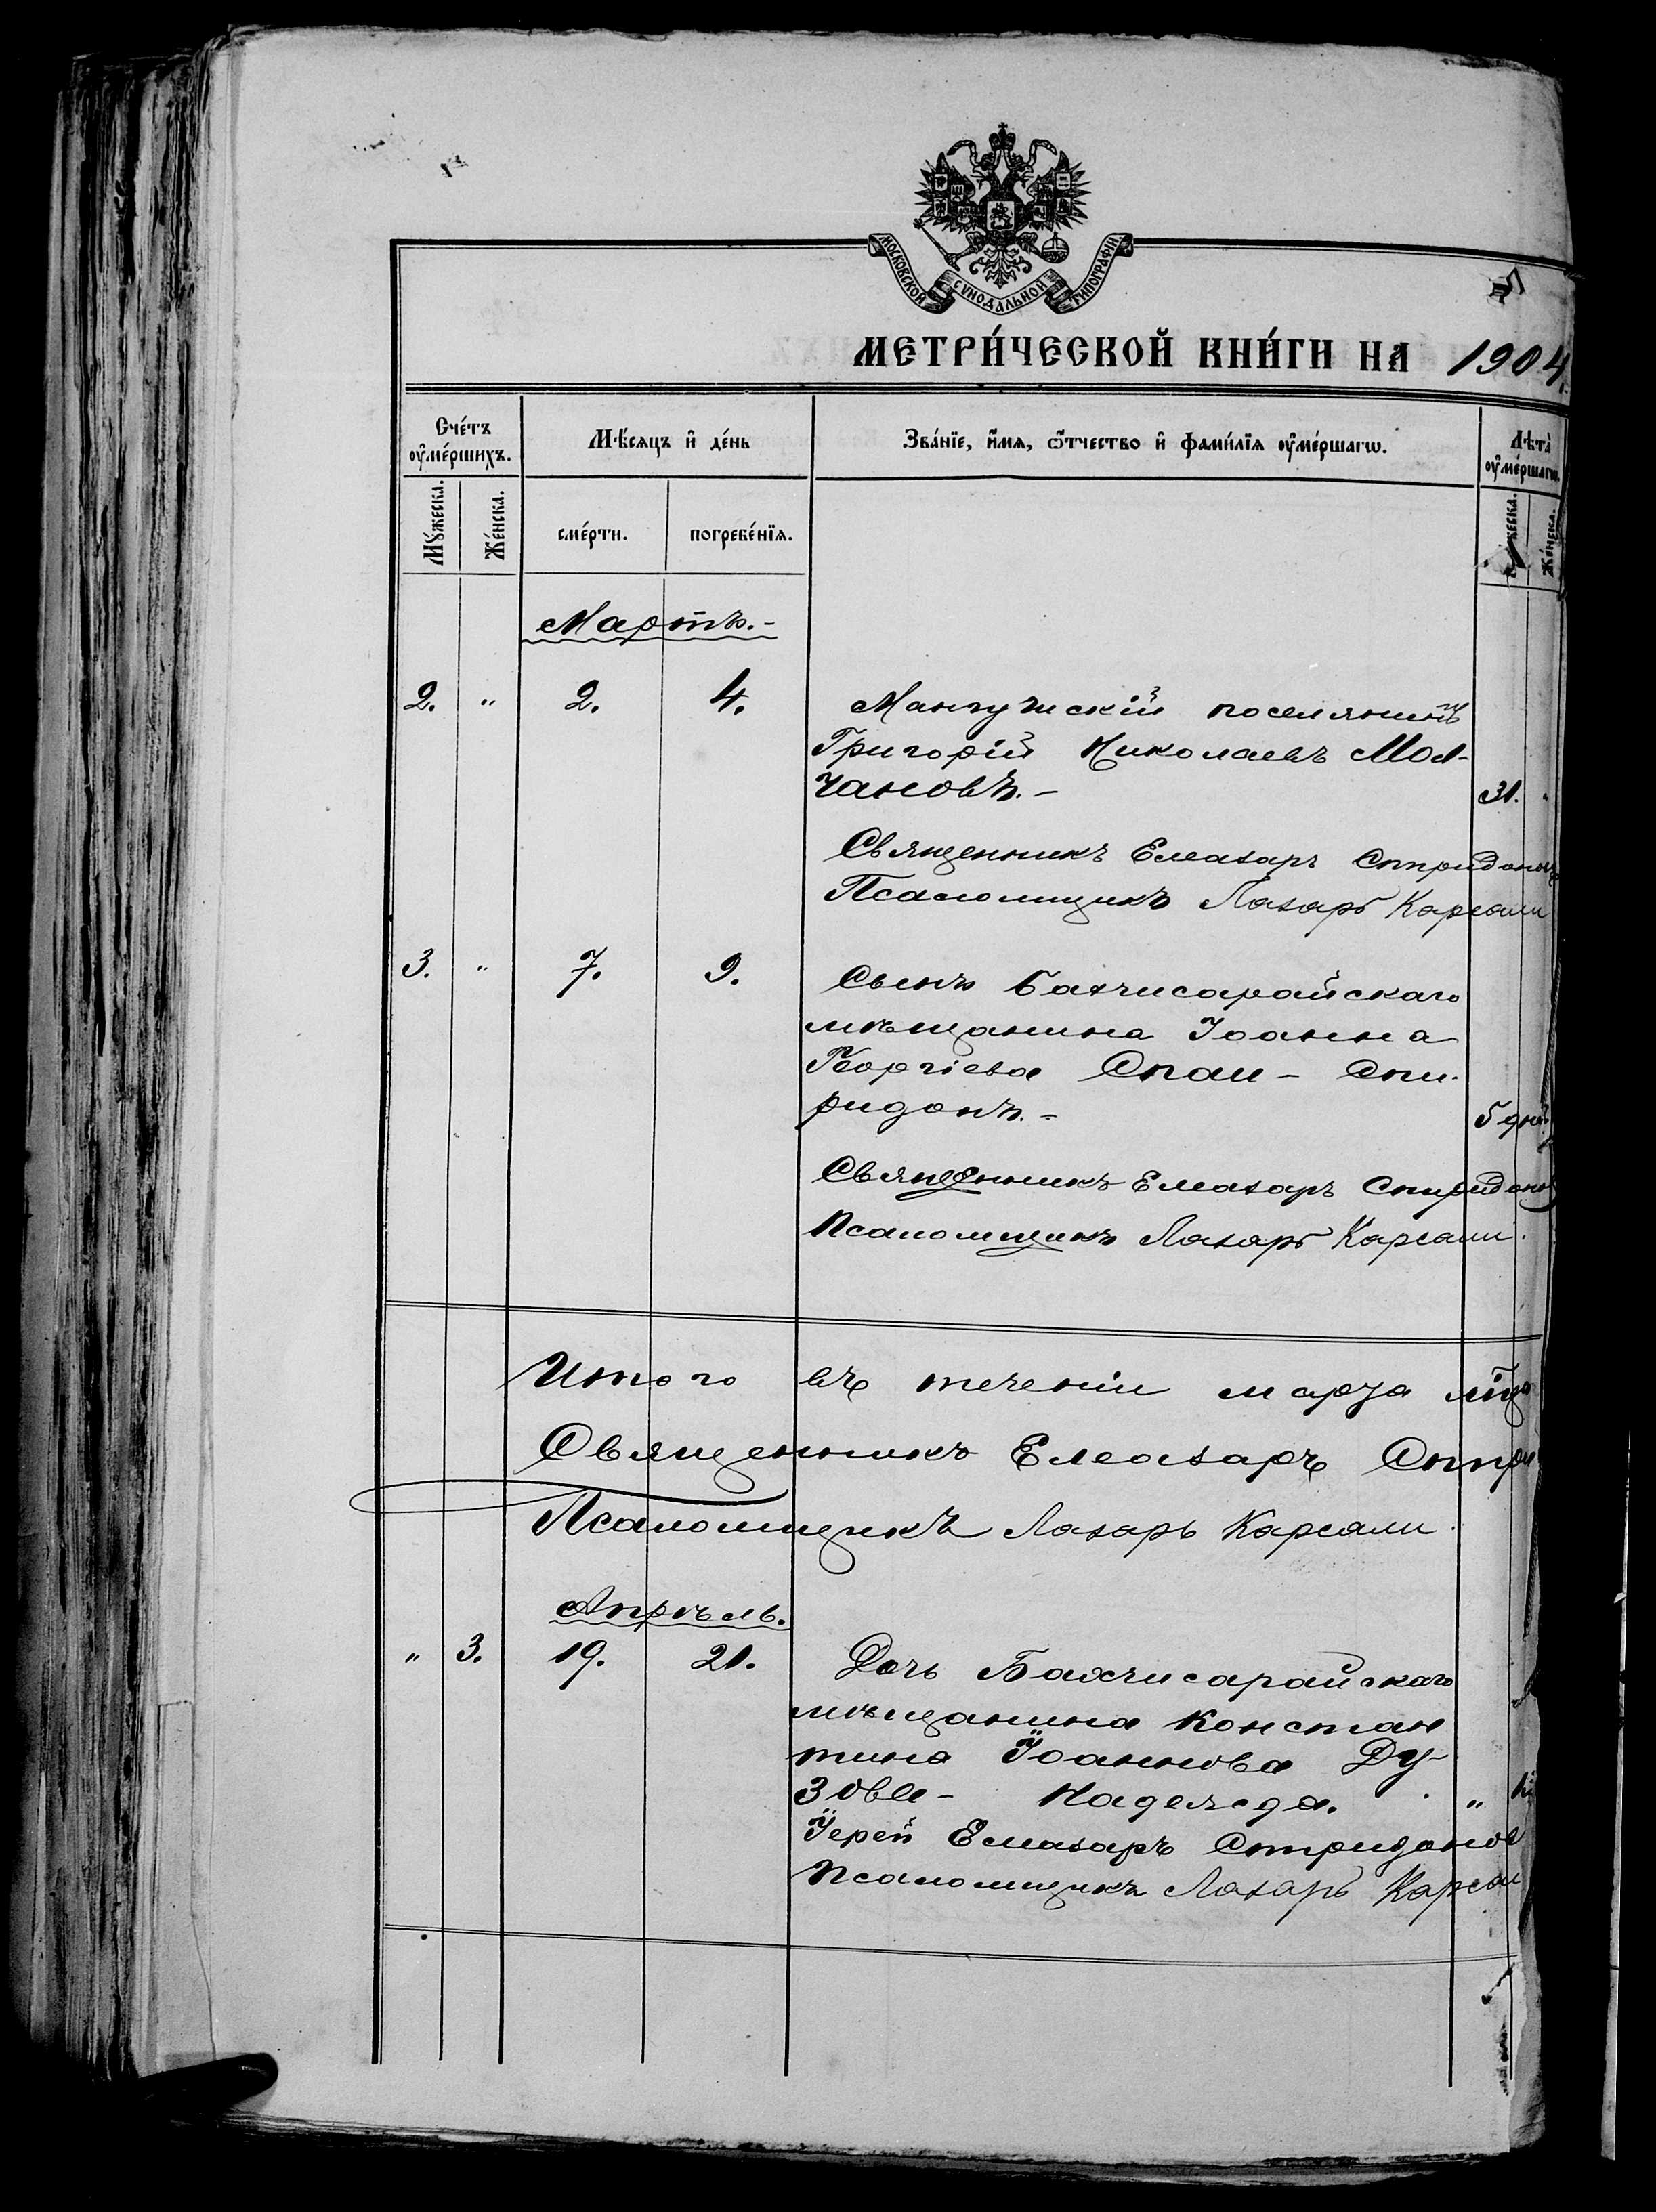 МОСКОВСКОЙ СѴНОДАЛЬНОЙ ТИПОГРАФІИ
МЕТРИ́ЧЕСКОЙ КНИ́ГИ НА 1904
Сче́тъ ᲂу҆ме́ршихъ. Мѣ́сяцъ и҆ де́нь Зва́нїе, и҆́мя, ѻ҆́тчество и҆ фами́лїя ᲂу҆ме́ршагѡ. Лѣта̀ ᲂу҆ме́ршагѡ.
Мꙋ́жеска. Же́нска. сме́рти. погребе́нїя. Же́нска.
Мартъ.-
2. " 2. 4. Мангушскій поселянинъ
Григорій Николаевъ Мол-
чановъ.- 31. "
Священникъ Елеазаръ Спиридоновъ
Псаломщикъ Лазарь Карсали
3. " 7. 9. Сынъ Бахчисарайскаго
мѣщанина Іоанна
Георгіева Спаи- Спи-
ридонъ.- 5 дней
Священникъ Елеазаръ Спиридонов
Псаломщикъ Лазарь Карсали.
Итого въ теченіи марта мѣца
Священникъ Елеазаръ Спири
Псаломщикъ Лазарь Карсали.
Апрѣль.
" 3. 19. 21. Дочь Бахчисарайскаго
мѣщанина Констан
тина Іоаннова Ду-
зовы- Надежда. "
Іерей Елеазаръ Спиридонов
Псаломщикъ Лазарь Карсали